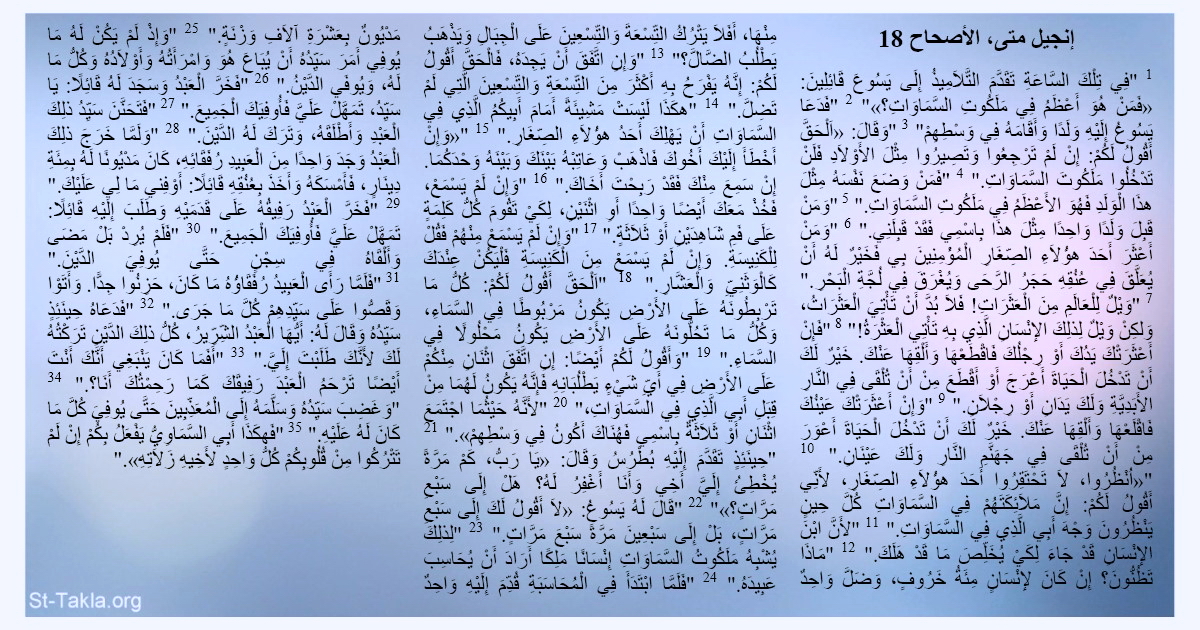 إنجيل متى، الأصحاح 18
1 "فِي تِلْكَ السَّاعَةِ تَقَدَّمَ التَّلاَمِيذُ إِلَى يَسُوعَ قَائِلِينَ:
«فَمَنْ هُوَ أَعْظَمُ فِي مَلَكُوتِ السَّمَاوَاتِ؟»" 2 "فَدَعَا
يَسُوعُ إِلَيْهِ وَلَدًا وَأَقَامَهُ فِي وَسْطِهِمْ" 3 "وَقَالَ: «اَلْحَقَّ
أَقُولُ لَكُمْ: إِنْ لَمْ تَرْجِعُوا وَتَصِيرُوا مِثْلَ الأَوْلاَدِ فَلَنْ
تَدْخُلُوا مَلَكُوتَ السَّمَاوَاتِ." 4 "فَمَنْ وَضَعَ نَفْسَهُ مِثْلَ
هذَا الْوَلَدِ فَهُوَ الأَعْظَمُ فِي مَلَكُوتِ السَّمَاوَاتِ." 5 "وَمَنْ
قَبِلَ وَلَدًا وَاحِدًا مِثْلَ هذَا بِاسْمِي فَقَدْ قَبِلَنِي." 6 "وَمَنْ
أَعْثَرَ أَحَدَ هؤُلاَءِ الصِّغَارِ الْمُؤْمِنِينَ بِي فَخَيْرٌ لَهُ أَنْ
يُعَلَّقَ فِي عُنُقِهِ حَجَرُ الرَّحَى وَيُغْرَقَ فِي لُجَّةِ الْبَحْرِ."
7 "وَيْلٌ لِلْعَالَمِ مِنَ الْعَثَرَاتِ! فَلاَ بُدَّ أَنْ تَأْتِيَ الْعَثَرَاتُ،
وَلكِنْ وَيْلٌ لِذلِكَ الإِنْسَانِ الَّذِي بِهِ تَأْتِي الْعَثْرَةُ!" 8 "فَإِنْ
أَعْثَرَتْكَ يَدُكَ أَوْ رِجْلُكَ فَاقْطَعْهَا وَأَلْقِهَا عَنْكَ. خَيْرٌ لَكَ
أَنْ تَدْخُلَ الْحَيَاةَ أَعْرَجَ أَوْ أَقْطَعَ مِنْ أَنْ تُلْقَى فِي النَّارِ
الأَبَدِيَّةِ وَلَكَ يَدَانِ أَوْ رِجْلاَنِ." 9 "وَإِنْ أَعْثَرَتْكَ عَيْنُكَ
فَاقْلَعْهَا وَأَلْقِهَا عَنْكَ. خَيْرٌ لَكَ أَنْ تَدْخُلَ الْحَيَاةَ أَعْوَرَ
مِنْ أَنْ تُلْقَى فِي جَهَنَّمِ النَّارِ وَلَكَ عَيْنَانِ." 10
"«اُنْظُرُوا، لاَ تَحْتَقِرُوا أَحَدَ هؤُلاَءِ الصِّغَارِ، لأَنِّي
أَقُولُ لَكُمْ: إِنَّ مَلاَئِكَتَهُمْ فِي السَّمَاوَاتِ كُلَّ حِينٍ
يَنْظُرُونَ وَجْهَ أَبِي الَّذِي فِي السَّمَاوَاتِ." 11 "لأَنَّ ابْنَ
الإِنْسَانِ قَدْ جَاءَ لِكَيْ يُخَلِّصَ مَا قَدْ هَلَكَ." 12 "مَاذَا
تَظُنُّونَ؟ إِنْ كَانَ لإِنْسَانٍ مِئَةُ خَرُوفٍ، وَضَلَّ وَاحِدٌ
مِنْهَا، أَفَلاَ يَتْرُكُ التِّسْعَةَ وَالتِّسْعِينَ عَلَى الْجِبَالِ وَيَذْهَبُ
يَطْلُبُ الضَّالَّ؟" 13 "وَإِنِ اتَّفَقَ أَنْ يَجِدَهُ، فَالْحَقَّ أَقُولُ
لَكُمْ: إِنَّهُ يَفْرَحُ بِهِ أَكْثَرَ مِنَ التِّسْعَةِ وَالتِّسْعِينَ الَّتِي لَمْ
تَضِلَّ." 14 "هكَذَا لَيْسَتْ مَشِيئَةً أَمَامَ أَبِيكُمُ الَّذِي فِي
السَّمَاوَاتِ أَنْ يَهْلِكَ أَحَدُ هؤُلاَءِ الصِّغَارِ." 15 "«وَإِنْ
أَخْطَأَ إِلَيْكَ أَخُوكَ فَاذْهَبْ وَعَاتِبْهُ بَيْنَكَ وَبَيْنَهُ وَحْدَكُمَا.
إِنْ سَمِعَ مِنْكَ فَقَدْ رَبِحْتَ أَخَاكَ." 16 "وَإِنْ لَمْ يَسْمَعْ،
فَخُذْ مَعَكَ أَيْضًا وَاحِدًا أَوِ اثْنَيْنِ، لِكَيْ تَقُومَ كُلُّ كَلِمَةٍ
عَلَى فَمِ شَاهِدَيْنِ أَوْ ثَلاَثَةٍ." 17 "وَإِنْ لَمْ يَسْمَعْ مِنْهُمْ فَقُلْ
لِلْكَنِيسَةِ. وَإِنْ لَمْ يَسْمَعْ مِنَ الْكَنِيسَةِ فَلْيَكُنْ عِنْدَكَ
كَالْوَثَنِيِّ وَالْعَشَّارِ." 18 "اَلْحَقَّ أَقُولُ لَكُمْ: كُلُّ مَا
تَرْبِطُونَهُ عَلَى الأَرْضِ يَكُونُ مَرْبُوطًا فِي السَّمَاءِ،
وَكُلُّ مَا تَحُلُّونَهُ عَلَى الأَرْضِ يَكُونُ مَحْلُولاً فِي
السَّمَاءِ." 19 "وَأَقُولُ لَكُمْ أَيْضًا: إِنِ اتَّفَقَ اثْنَانِ مِنْكُمْ
عَلَى الأَرْضِ فِي أَيِّ شَيْءٍ يَطْلُبَانِهِ فَإِنَّهُ يَكُونُ لَهُمَا مِنْ
قِبَلِ أَبِي الَّذِي فِي السَّمَاوَاتِ،" 20 "لأَنَّهُ حَيْثُمَا اجْتَمَعَ
اثْنَانِ أَوْ ثَلاَثَةٌ بِاسْمِي فَهُنَاكَ أَكُونُ فِي وَسْطِهِمْ»." 21
"حِينَئِذٍ تَقَدَّمَ إِلَيْهِ بُطْرُسُ وَقَالَ: «يَا رَبُّ، كَمْ مَرَّةً
يُخْطِئُ إِلَيَّ أَخِي وَأَنَا أَغْفِرُ لَهُ؟ هَلْ إِلَى سَبْعِ
مَرَّاتٍ؟»" 22 "قَالَ لَهُ يَسُوعُ: «لاَ أَقُولُ لَكَ إِلَى سَبْعِ
مَرَّاتٍ، بَلْ إِلَى سَبْعِينَ مَرَّةً سَبْعَ مَرَّاتٍ." 23 "لِذلِكَ
يُشْبِهُ مَلَكُوتُ السَّمَاوَاتِ إِنْسَانًا مَلِكًا أَرَادَ أَنْ يُحَاسِبَ
عَبِيدَهُ." 24 "فَلَمَّا ابْتَدَأَ فِي الْمُحَاسَبَةِ قُدِّمَ إِلَيْهِ وَاحِدٌ
مَدْيُونٌ بِعَشْرَةِ آلاَفِ وَزْنَةٍ." 25 "وَإِذْ لَمْ يَكُنْ لَهُ مَا
يُوفِي أَمَرَ سَيِّدُهُ أَنْ يُبَاعَ هُوَ وَامْرَأَتُهُ وَأَوْلاَدُهُ وَكُلُّ مَا
لَهُ، وَيُوفَى الدَّيْنُ." 26 "فَخَرَّ الْعَبْدُ وَسَجَدَ لَهُ قَائِلاً: يَا
سَيِّدُ، تَمَهَّلْ عَلَيَّ فَأُوفِيَكَ الْجَمِيعَ." 27 "فَتَحَنَّنَ سَيِّدُ ذلِكَ
الْعَبْدِ وَأَطْلَقَهُ، وَتَرَكَ لَهُ الدَّيْنَ." 28 "وَلَمَّا خَرَجَ ذلِكَ
الْعَبْدُ وَجَدَ وَاحِدًا مِنَ الْعَبِيدِ رُفَقَائِهِ، كَانَ مَدْيُونًا لَهُ بِمِئَةِ
دِينَارٍ، فَأَمْسَكَهُ وَأَخَذَ بِعُنُقِهِ قَائِلاً: أَوْفِنِي مَا لِي عَلَيْكَ."
29 "فَخَرَّ الْعَبْدُ رَفِيقُهُ عَلَى قَدَمَيْهِ وَطَلَبَ إِلَيْهِ قَائِلاً:
تَمَهَّلْ عَلَيَّ فَأُوفِيَكَ الْجَمِيعَ." 30 "فَلَمْ يُرِدْ بَلْ مَضَى
وَأَلْقَاهُ فِي سِجْنٍ حَتَّى يُوفِيَ الدَّيْنَ."
31 "فَلَمَّا رَأَى الْعَبِيدُ رُفَقَاؤُهُ مَا كَانَ، حَزِنُوا جِدًّا. وَأَتَوْا
وَقَصُّوا عَلَى سَيِّدِهِمْ كُلَّ مَا جَرَى." 32 "فَدَعَاهُ حِينَئِذٍ
سَيِّدُهُ وَقَالَ لَهُ: أَيُّهَا الْعَبْدُ الشِّرِّيرُ، كُلُّ ذلِكَ الدَّيْنِ تَرَكْتُهُ
لَكَ لأَنَّكَ طَلَبْتَ إِلَيَّ." 33 "أَفَمَا كَانَ يَنْبَغِي أَنَّكَ أَنْتَ
أَيْضًا تَرْحَمُ الْعَبْدَ رَفِيقَكَ كَمَا رَحِمْتُكَ أَنَا؟." 34
"وَغَضِبَ سَيِّدُهُ وَسَلَّمَهُ إِلَى الْمُعَذِّبِينَ حَتَّى يُوفِيَ كُلَّ مَا
كَانَ لَهُ عَلَيْهِ." 35 "فَهكَذَا أَبِي السَّمَاوِيُّ يَفْعَلُ بِكُمْ إِنْ لَمْ
تَتْرُكُوا مِنْ قُلُوبِكُمْ كُلُّ وَاحِدٍ لأَخِيهِ زَلاَتِهِ»."
St-Takla.org